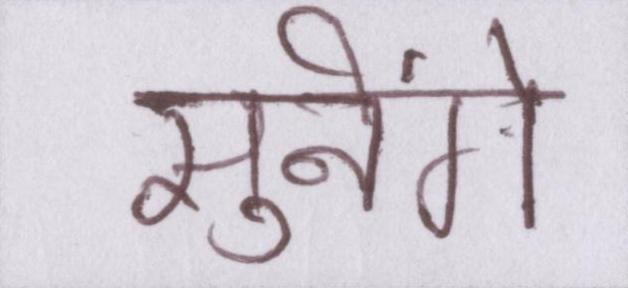 सुनेंगे